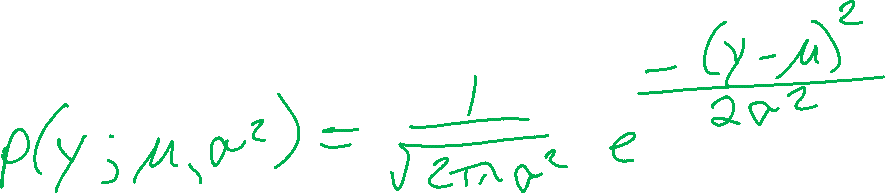 p(y; μ, σ²) = \frac{1}{\sqrt{2πσ²}} e^{\frac{-(y-μ)^2}{2σ^2}}